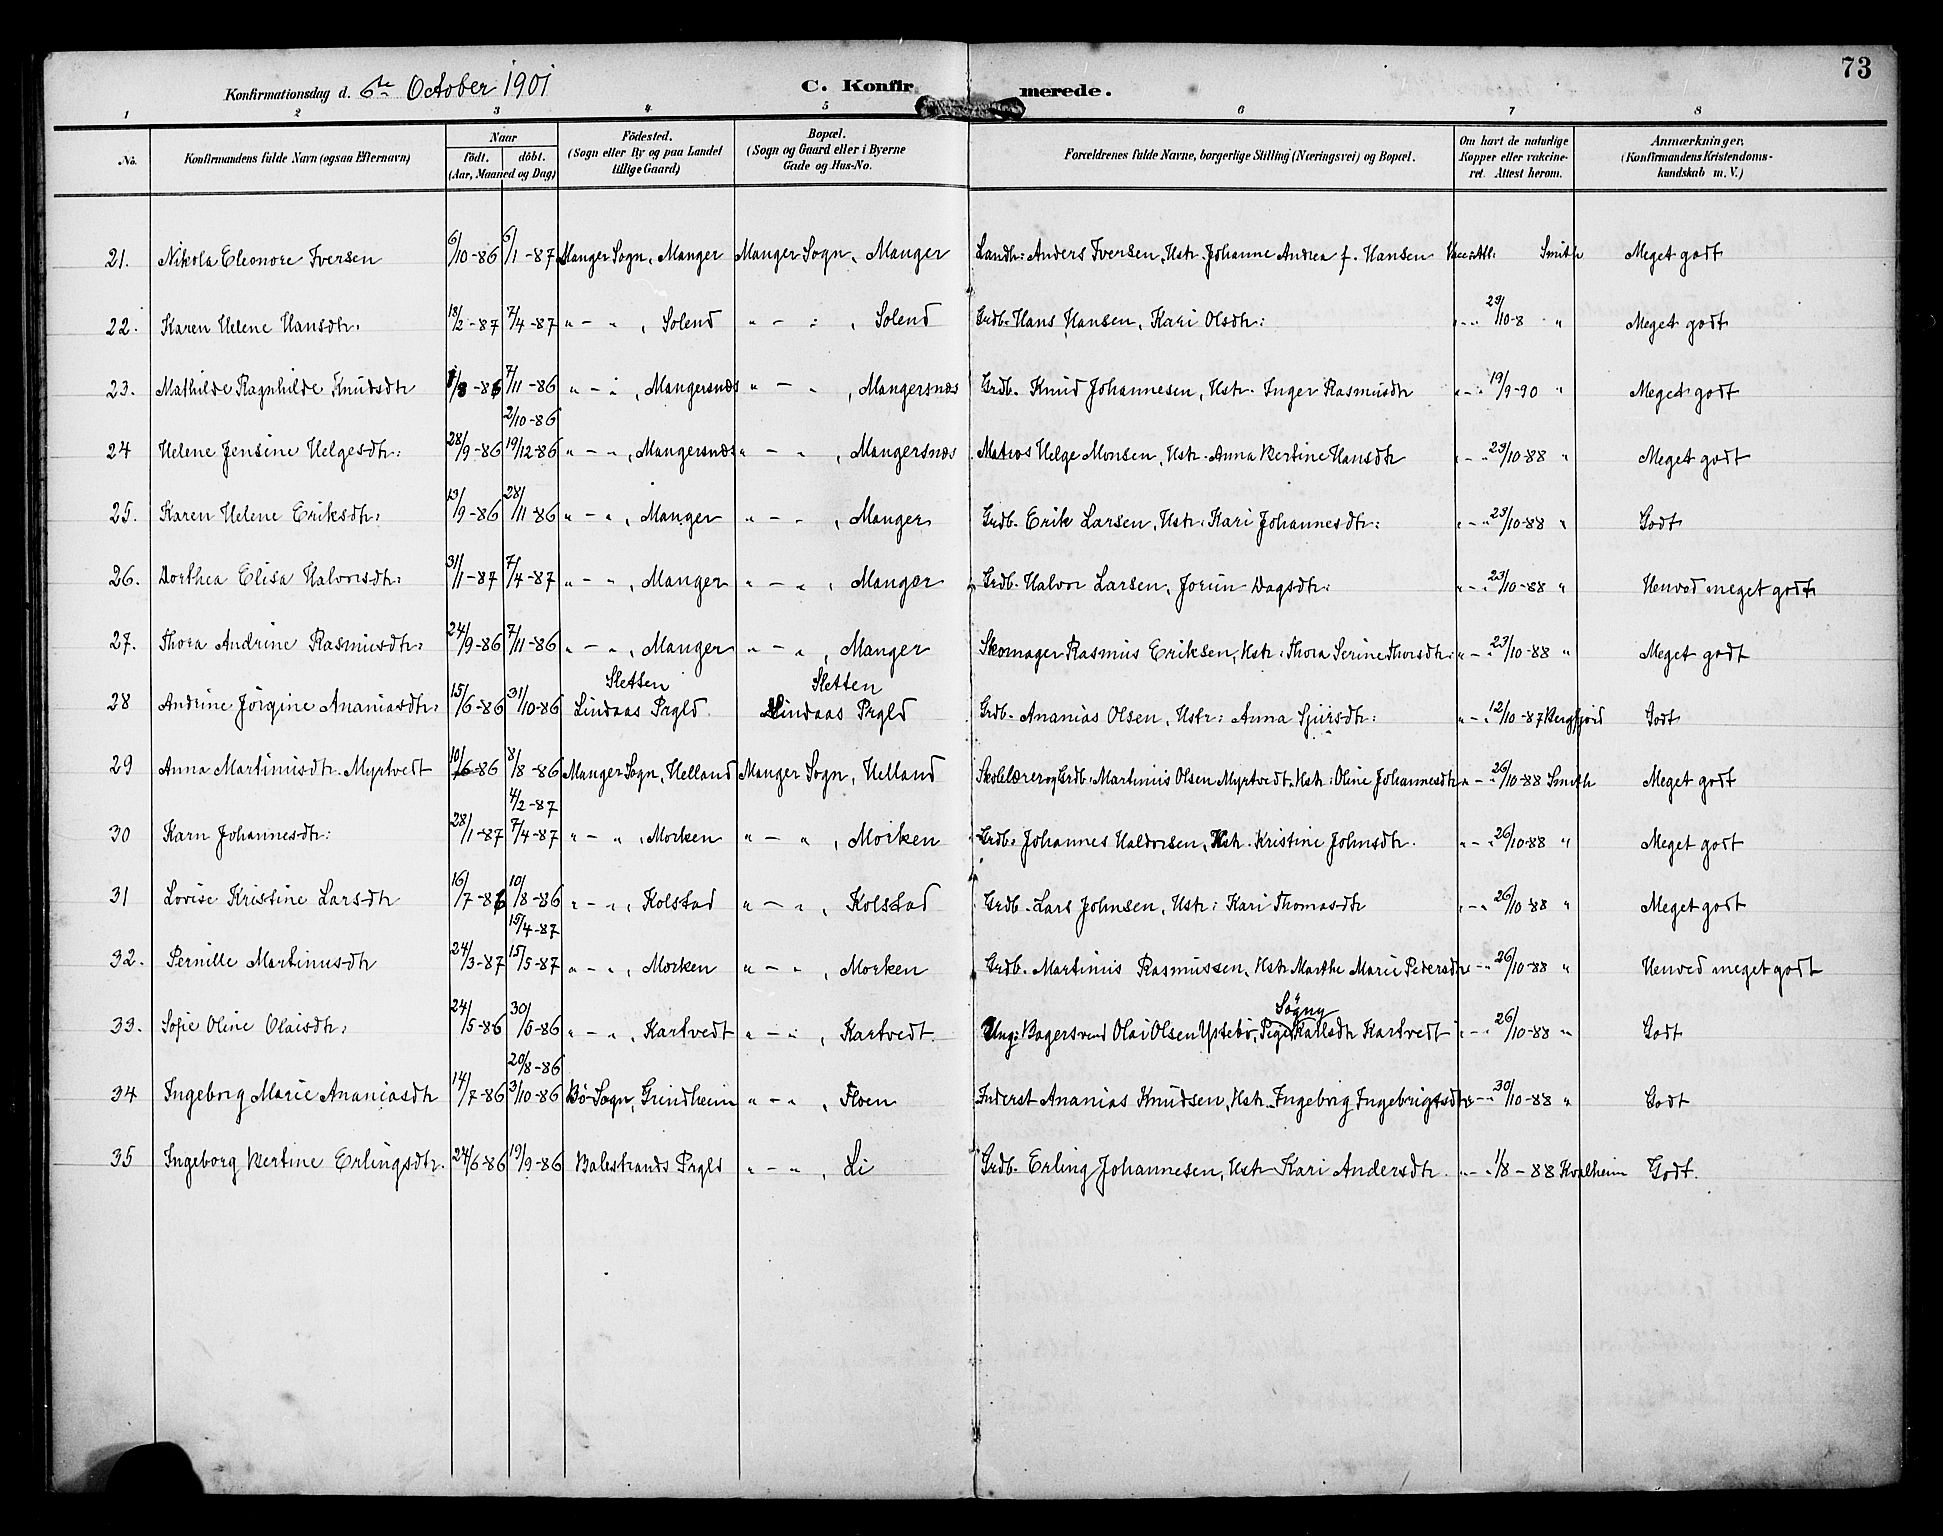 73
Konfirmationsdag d. 6te October 1901 C. Konfirmerede.
1 2 3 4 5 6 7 8
No. Konfirmandens fulde Navn (ogsaa Efternavn) Naar födt. döbt. (Aar, Maaned og Dag) Födested. (Sogn eller By og paa Landet tillige Gaard) Bopæl. (Sogn og Gaard eller i Byerne Gade og Hus-No. Forældrenes fulde Navne, borgerlige Stilling (Næringsvei) og Bopæl. Om havt de naturlige Kopper eller vakcineret. Attest herom. Anmærkninger. (Konfirmandens Kristendomskundskab m. V.)
21. Nikola Eleonore Iversen 6/10-86 6/1-87 Manger Sogn, Manger Manger Sogn, Manger Landh: Anders Iversen, Hstr. Johanne Andrea f. Hansen Vacc: Att: Smith Meget godt
22. Karen Helene Hansdtr: 18/2-87 7/4-87 " - " , Solend " - " , Solend Grdb. Hans Hansen, Kari Olsdtr: " - " 23/10-8 " Meget godt
23. Mathilde Ragnhilde Knudsdtr /8-86 7/11-86 " - " , Mangersnæs " - " , Mangersnæs Grdb. Knud Johannesen, Hstr. Inger Rasmusdtr " - " 19/9-90 " Meget godt
2/10-86
24 Helene Jensine Helgesdtr: 28/9-86 19/12-86 " - " , Mangersnæs " - " , Mangersnæs Matros Helge Monsen, Hstr. Anna Bertine Hansdtr " - " 23/10-88 " Meget godt
25. Karen Helene Eriksdtr: 13/9-86 28/11-86 " - " , Manger " - " , Manger Grdb. Erik Larsen, Hstr: Kari Johannesdtr: " - " 23/10-88 " Godt
26. Dorthea Elisa Halvorsdtr: 31/1-87 7/4-87 " - " , Manger " - " , Manger Grdb. Halvor Larsen, Jorun Dagsdtr: " - " 23/10-88 " Henved meget godt
27. Thora Andrine Rasmusdtr: 24/9-86 7/11-86 " - " , Manger " - " , Manger Skomager Rasmus Eriksen, Hstr: Thora Serine Thorsdtr: " - " 23/10-88 " Meget godt
Sletten Sletten
28 Andrine Jörgine Ananiasdtr: 15/6-86 31/10-86 Lindaas Prgld. Lindaas Prgld Grdb. Ananias Olsen, Hstr: Anna Sjursdtr: " - " 12/10-87 Bergfjord Godt
29 Anna Martinusdtr. Myrtvedt 10/6-86 8/8-86 Manger Sogn, Helland Manger Sogn, Helland Skolelærer og Grdb: Martinus Olsen Myrtvedt, Hstr: Oline Johannesdtr " - " 26/10-88 Smith Meget godt
4/2-87
30 Karn Johannesdtr: 28/1-87 7/4-87 " - " , Morken " - " , Morken Grdb. Johannes Haldorsen, Hstr. Kristine Johnsdtr. " - " 26/10-88 " Meget godt
31 Lovise Kristine Larsdtr 16/7-86 10/8-86 " - " , Kolstad " - " , Kolstad Grdb. Lars Johnsen, Hstr: Kari Thomasdtr " - " 26/10-88 " Meget godt
15/4-87
32. Pernille Martinusdtr 24/3-87 15/5-87 " - " , Morken " - " , Morken Grdb. Martinus Rasmussen, Hstr Marthe Marie Pedersdtr " - " 26/10-88 " Henved meget godt
Sögny
33. Sofie Oline Olaisdtr: 24/5-86 30/5-86 " - " , Kartvedt " - " , Kartvedt. Ung: Bagersvend Olai Olsen Ystebö, Pige Karlsdtr Kartvedt " - " 26/10-88 " Godt
20/8-86
34 Ingeborg Marie Ananiasdtr 14/7-86 3/10-86 Bö-Sogn, Grindheim " - " , Floen Inderst Ananias Knudsen, Hstr. Ingeborg Ingebrigtsdtr " - " 30/10-88 " Godt
35 Ingeborg Bertine Erlingsdtr. 24/6-86 19/9-86 Balestrands Prgld " - " , Li Grdb. Erling Johannesen, Hstr Kari Andersdtr " - " 1/8-88 Kvalheim Godt.